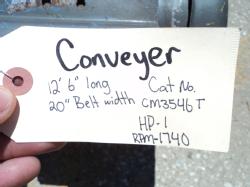 Conveyer
12' 6" long Cat No.
20" Belt width CM3546T
HP-1
RPM-1740